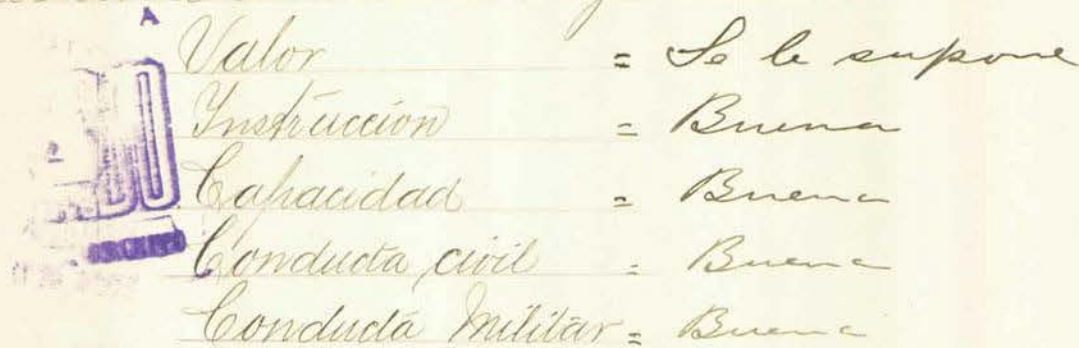 Valor = Se le supone
Instrucción = Buena
Capacidad = Buena
Conducta civil = Buena
Conducta Militar = Buena